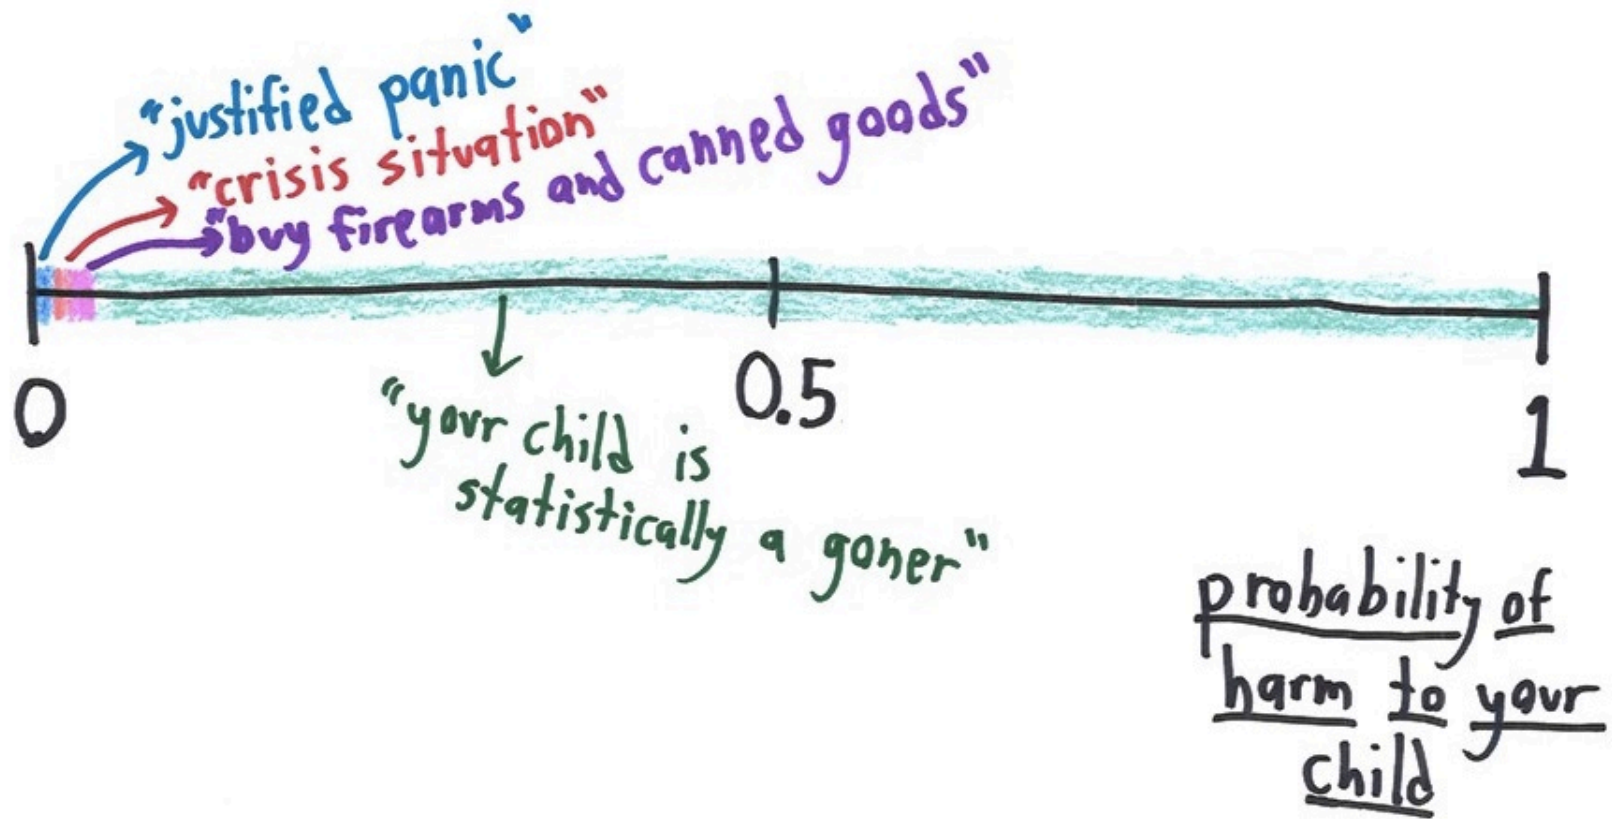 "justified panic"
"crisis situation"
"buy firearms and canned goods"
0
0.5
1
"your child is
statistically a goner"
probability of
harm to your
child